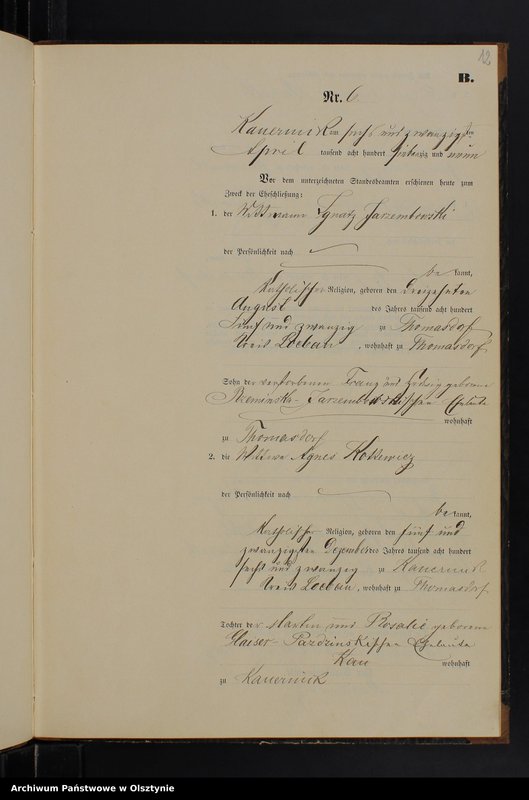 12
B.
Nr. 6
Kauernik am sechs und zwanzigsten
April tausend acht hundert siebenzig und neun
Vor dem unterzeichneten Standesbeamten erschienen heute zum
Zweck der Eheschließung:
1. der Wittwann Ignatz Jarzembowski
der Persönlichkeit nach
be kannt,
katholischer Religion, geboren den dreizehnten
August des Jahres tausend acht hundert
fünf und zwanzig zu Thomasdorf
Kreis Loebau, wohnhaft zu Thomasdorf
Sohn der verstorbenen Franz und Hedwig geborene
Jarzembowskischen Eheleute
wohnhaft
zu Thomasdorf
2. die Wittwe Agnes Kotkewicz
der Persönlichkeit nach
be kannt,
katholischer Religion, geboren den fünf und
zwanzigsten Dezember des Jahres tausend acht hundert
sechs und zwanzig zu Kauernik
Kreis Loebau, wohnhaft zu Thomasdorf
Tochter der Martin und Rosalie geborene
Glaiser Eheleute
Kau wohnhaft
zu Kauernik
Archiwum Państwowe w Olsztynie